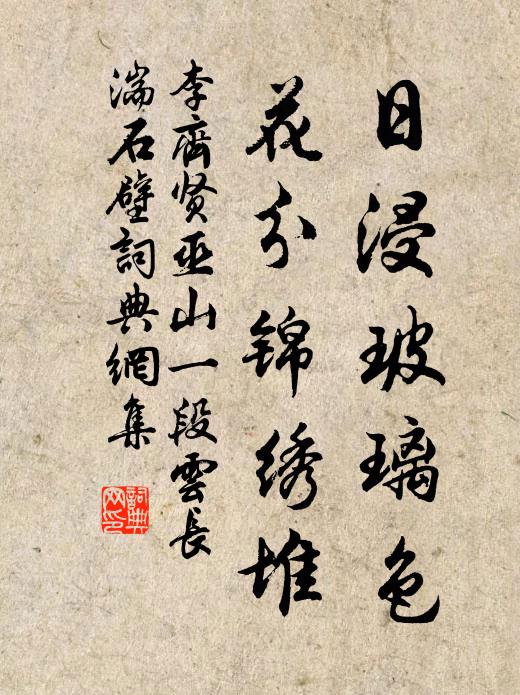 日浸玻璃色
花分锦绣堆
李齊贤巫山一段雲長
湍石壁詞典網集
詞典
网印